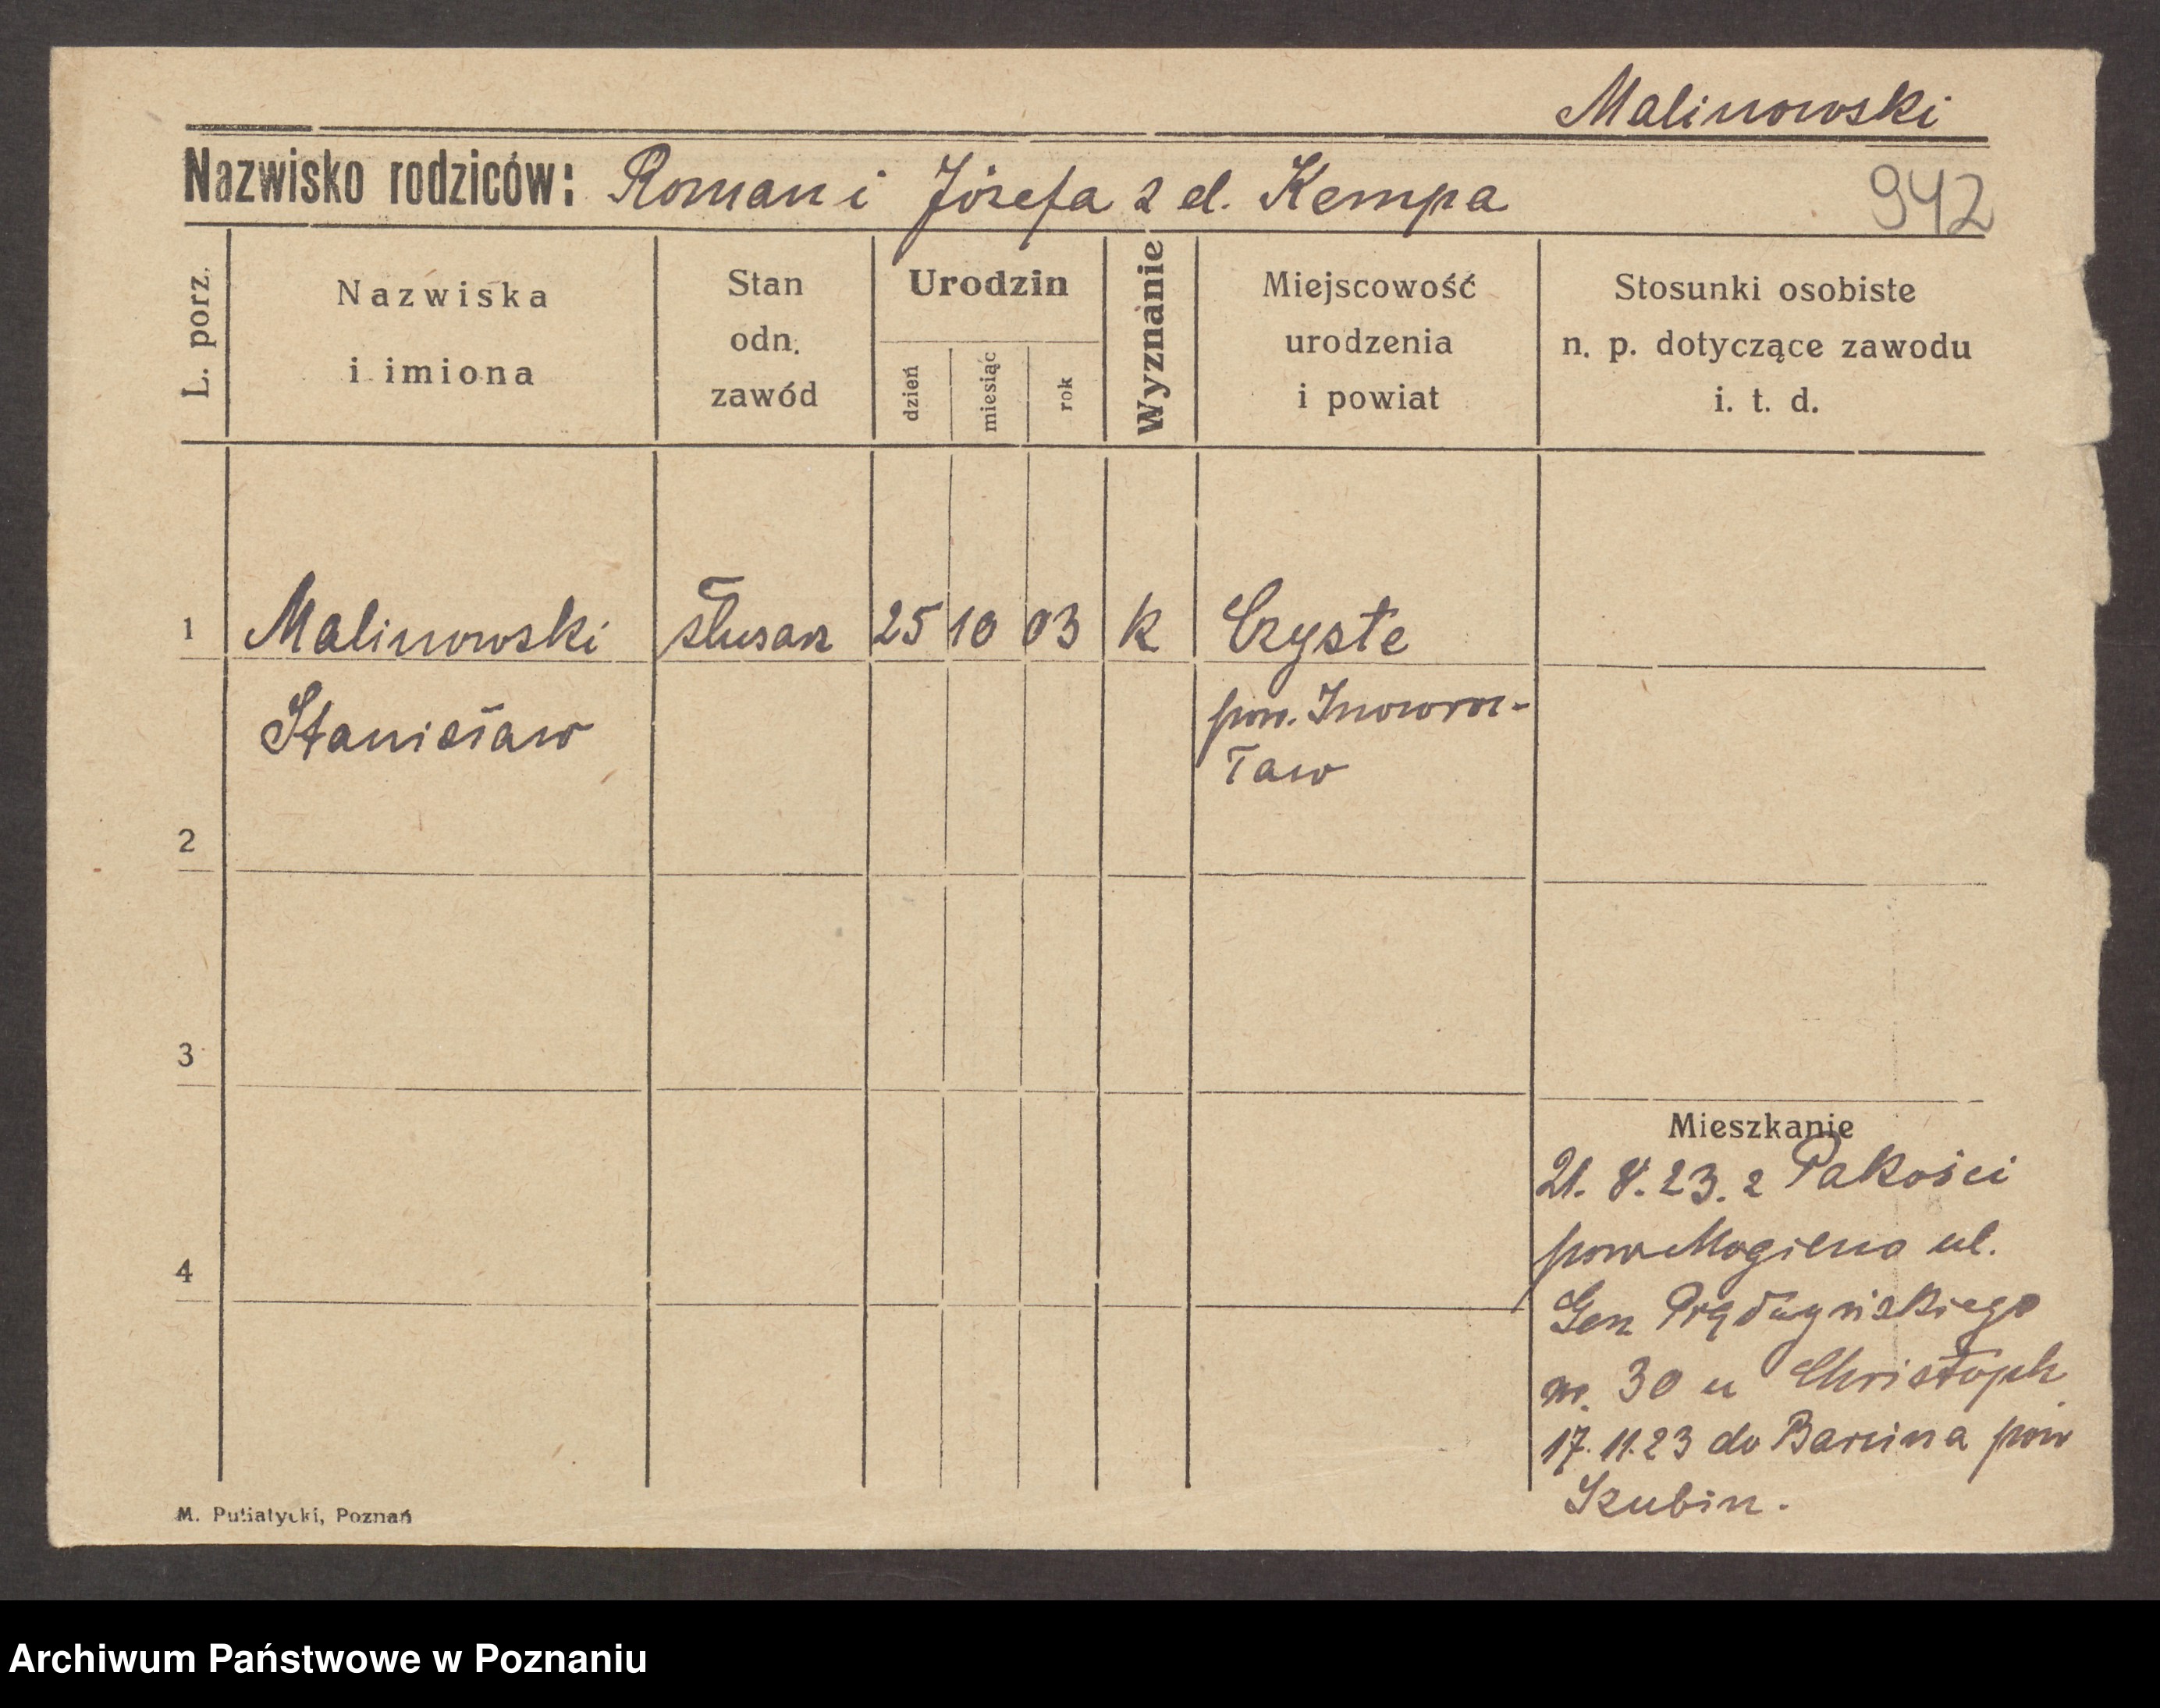 Malinowski
Nazwisko rodziców: Roman i Józefa z d. Kempa
942
L. porz.
Nazwiska
i imiona
Stan
odn.
zawód
Urodzin
dzień
miesiąc
rok
Wyznanie
Miejscowość
urodzenia
i powiat
Stosunki osobiste
n. p. dotyczące zawodu
i. t. d.
1 Malinowski ślusarz 25 10 03 k Czyste
Stanisław pow. Inowroc-
ław
2
3
4
Mieszkanie
21. 8. 23. z Pakości
pow Mogilno ul.
Gen Prądzyńskiego
nr. 30 u Christoph
17. 11. 23 do Barcina pow
Szubin.
M. Putiatycki, Poznań
Archiwum Państwowe w Poznaniu